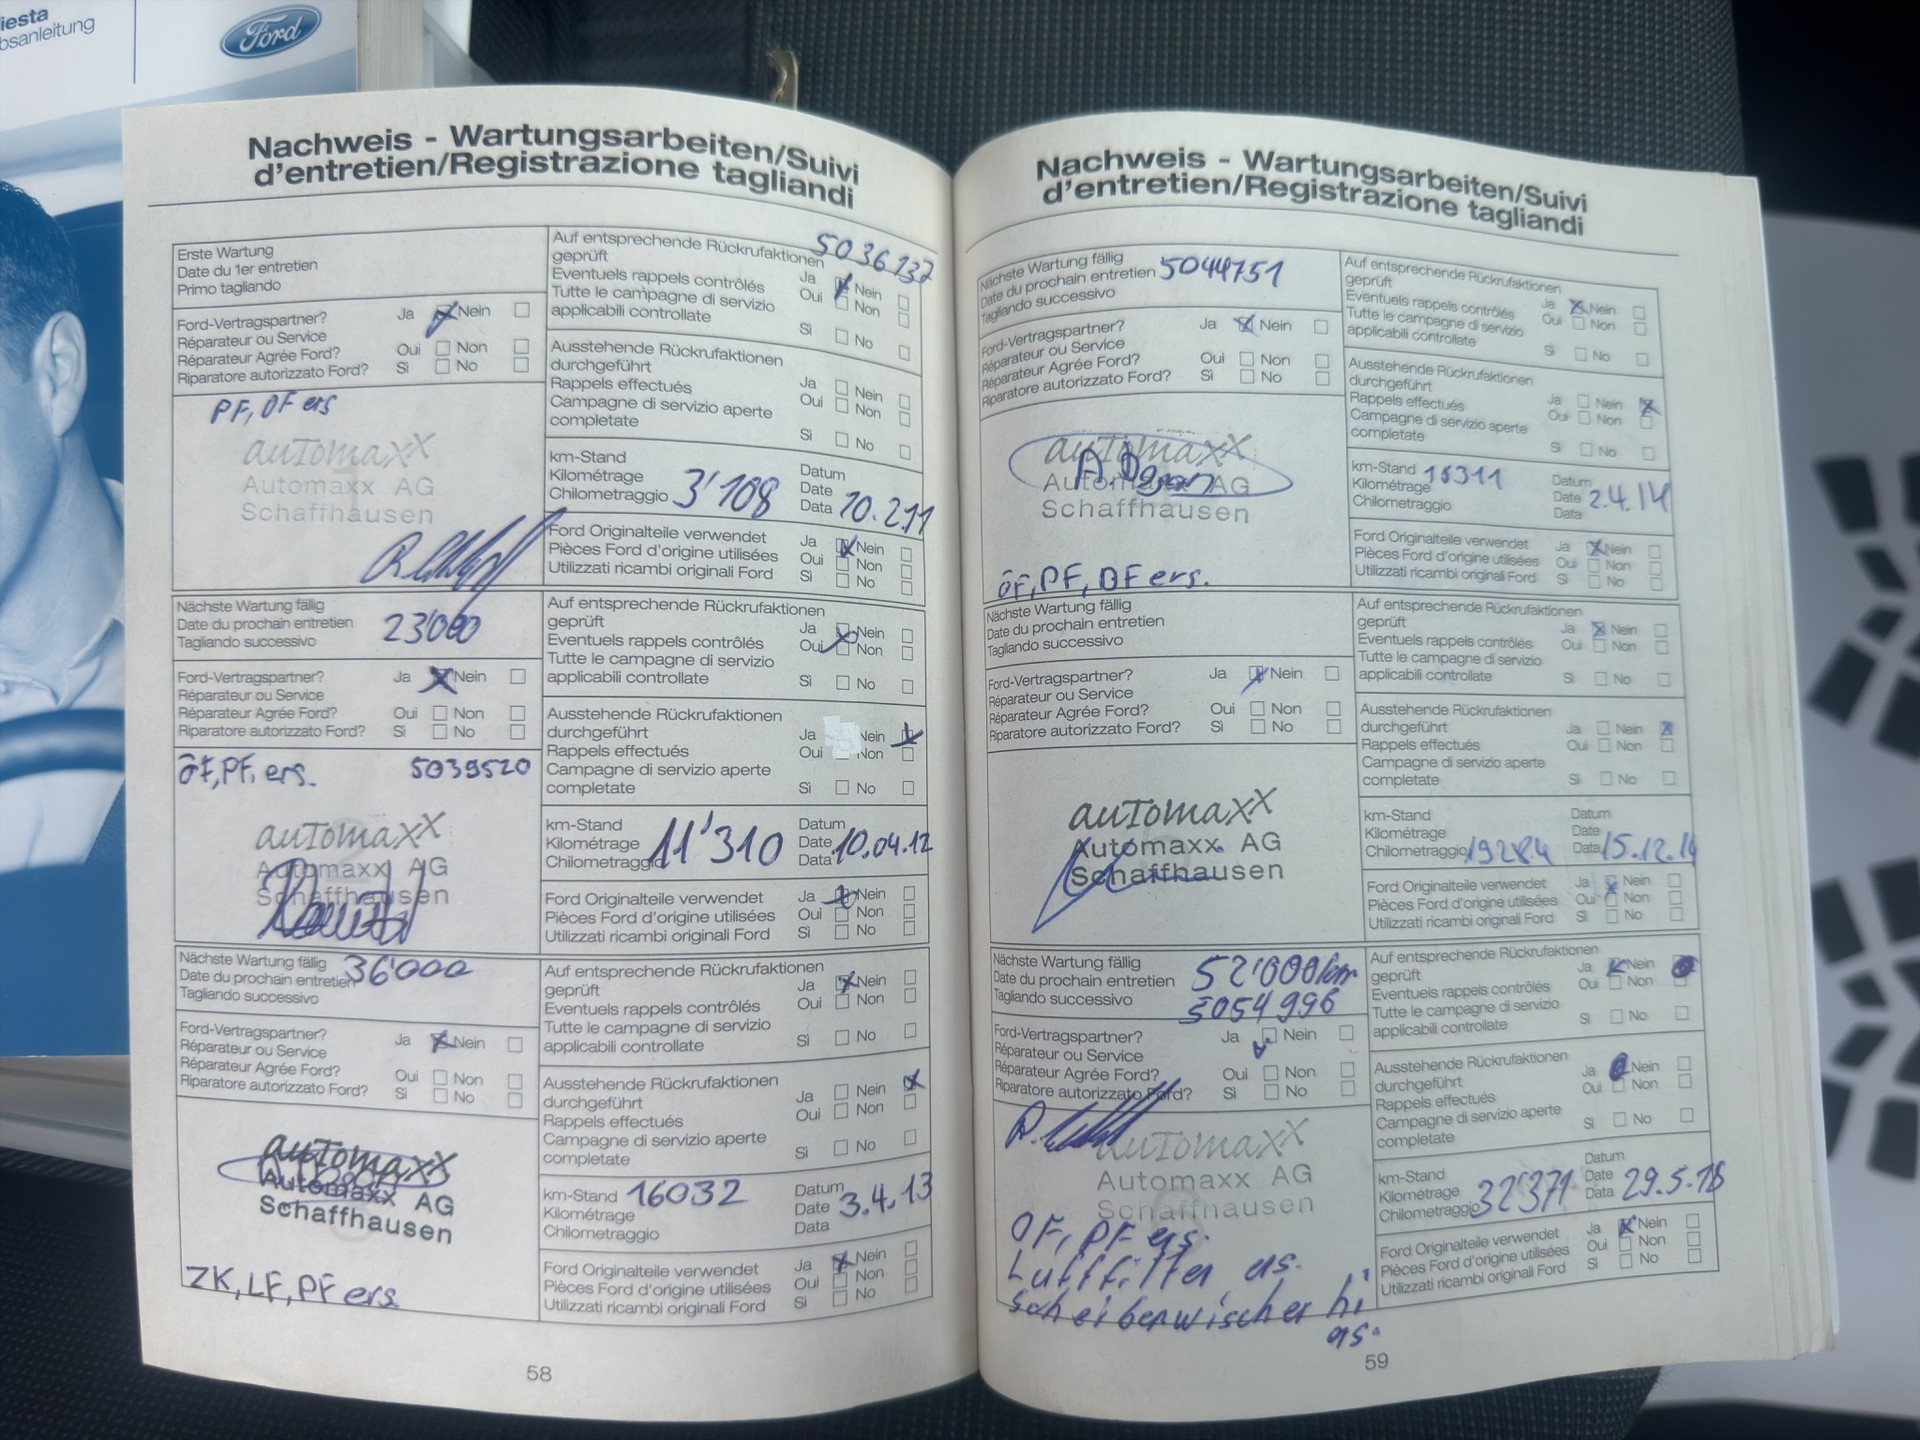 iesta
bsanleitung
Ford
Nachweis - Wartungsarbeiten/Suivi
d'entretien/Registrazione tagliandi
Erste Wartung
Date du 1er entretien
Primo tagliando
Ford-Vertragspartner? Ja Nein
Réparateur ou Service
Réparateur Agrée Ford? Oui Non
Riparatore autorizzato Ford? Sì No
PF, ers
automaxx
Automaxx AG
Schaffhausen
Auf entsprechende Rückrufaktionen 5036137
geprüft Ja Nein
Eventuels rappels contrôlés Oui Non
Tutte le campagne di servizio
applicabili controllate Sì No
Ausstehende Rückrufaktionen
durchgeführt Ja Nein
Rappels effectués Oui Non
Campagne di servizio aperte
completate Sì No
km-Stand Datum
Kilométrage 3'108 Date 10.2.11
Chilometraggio Data
Ford Originalteile verwendet Ja Nein
Pièces Ford d'origine utilisées Oui Non
Utilizzati ricambi originali Ford Sì No
Nächste Wartung fällig
Date du prochain entretien 23'000
Tagliando successivo
Ford-Vertragspartner? Ja Nein
Réparateur ou Service
Réparateur Agrée Ford? Oui Non
Riparatore autorizzato Ford? Sì No
ÖF, PF, ers. 5039520
automaxx
Automaxx AG
Schaffhausen
Auf entsprechende Rückrufaktionen
geprüft Ja Nein
Eventuels rappels contrôlés Oui Non
Tutte le campagne di servizio
applicabili controllate Sì No
Ausstehende Rückrufaktionen
durchgeführt Ja Nein
Rappels effectués Oui Non
Campagne di servizio aperte
completate Sì No
km-Stand Datum
Kilométrage 11'310 Date 10.04.12
Chilometraggio Data
Ford Originalteile verwendet Ja Nein
Pièces Ford d'origine utilisées Oui Non
Utilizzati ricambi originali Ford Sì No
Nächste Wartung fällig 36'000
Date du prochain entretien
Tagliando successivo
Ford-Vertragspartner? Ja Nein
Réparateur ou Service
Réparateur Agrée Ford? Oui Non
Riparatore autorizzato Ford? Sì No
automaxx
Automaxx AG
Schaffhausen
ZK, LF, PF ers.
Auf entsprechende Rückrufaktionen
geprüft Ja Nein
Eventuels rappels contrôlés Oui Non
Tutte le campagne di servizio
applicabili controllate Sì No
Ausstehende Rückrufaktionen
durchgeführt Ja Nein
Rappels effectués Oui Non
Campagne di servizio aperte
completate Sì No
km-Stand 16032 Datum
Kilométrage Date 3.4.13
Chilometraggio Data
Ford Originalteile verwendet Ja Nein
Pièces Ford d'origine utilisées Oui Non
Utilizzati ricambi originali Ford Sì No
58
Nachweis - Wartungsarbeiten/Suivi
d'entretien/Registrazione tagliandi
Nächste Wartung fällig
Date du prochain entretien 5044751
Tagliando successivo
Ford-Vertragspartner? Ja Nein
Réparateur ou Service
Réparateur Agrée Ford? Oui Non
Riparatore autorizzato Ford? Sì No
automaxx
Automaxx AG
Schaffhausen
ÖF, PF, ers.
Auf entsprechende Rückrufaktionen
geprüft Ja Nein
Eventuels rappels contrôlés Oui Non
Tutte le campagne di servizio
applicabili controllate Sì No
Ausstehende Rückrufaktionen
durchgeführt Ja Nein
Rappels effectués Oui Non
Campagne di servizio aperte
completate Sì No
km-Stand Datum
Kilométrage Date 2.4.14
Chilometraggio Data
Ford Originalteile verwendet Ja Nein
Pièces Ford d'origine utilisées Oui Non
Utilizzati ricambi originali Ford Sì No
Nächste Wartung fällig
Date du prochain entretien
Tagliando successivo
Ford-Vertragspartner? Ja Nein
Réparateur ou Service
Réparateur Agrée Ford? Oui Non
Riparatore autorizzato Ford? Sì No
automaxx
Automaxx AG
Schaffhausen
Auf entsprechende Rückrufaktionen
geprüft Ja Nein
Eventuels rappels contrôlés Oui Non
Tutte le campagne di servizio
applicabili controllate Sì No
Ausstehende Rückrufaktionen
durchgeführt Ja Nein
Rappels effectués Oui Non
Campagne di servizio aperte
completate Sì No
km-Stand Datum
Kilométrage Date
Chilometraggio 19284 Data 15.12.14
Ford Originalteile verwendet Ja Nein
Pièces Ford d'origine utilisées Oui Non
Utilizzati ricambi originali Ford Sì No
Nächste Wartung fällig
Date du prochain entretien 52'000km
Tagliando successivo 5054996
Ford-Vertragspartner? Ja Nein
Réparateur ou Service
Réparateur Agrée Ford? Oui Non
Riparatore autorizzato Ford? Sì No
automaxx
Automaxx AG
Schaffhausen
ÖF, PF ers.
Luftfilter, ers.
Scheibenwischer hi
ers.
Auf entsprechende Rückrufaktionen
geprüft Ja Nein
Eventuels rappels contrôlés Oui Non
Tutte le campagne di servizio
applicabili controllate Sì No
Ausstehende Rückrufaktionen
durchgeführt Ja Nein
Rappels effectués Oui Non
Campagne di servizio aperte
completate Sì No
km-Stand Datum
Kilométrage 32'371 Date 29.5.18
Chilometraggio Data
Ford Originalteile verwendet Ja Nein
Pièces Ford d'origine utilisées Oui Non
Utilizzati ricambi originali Ford Sì No
59